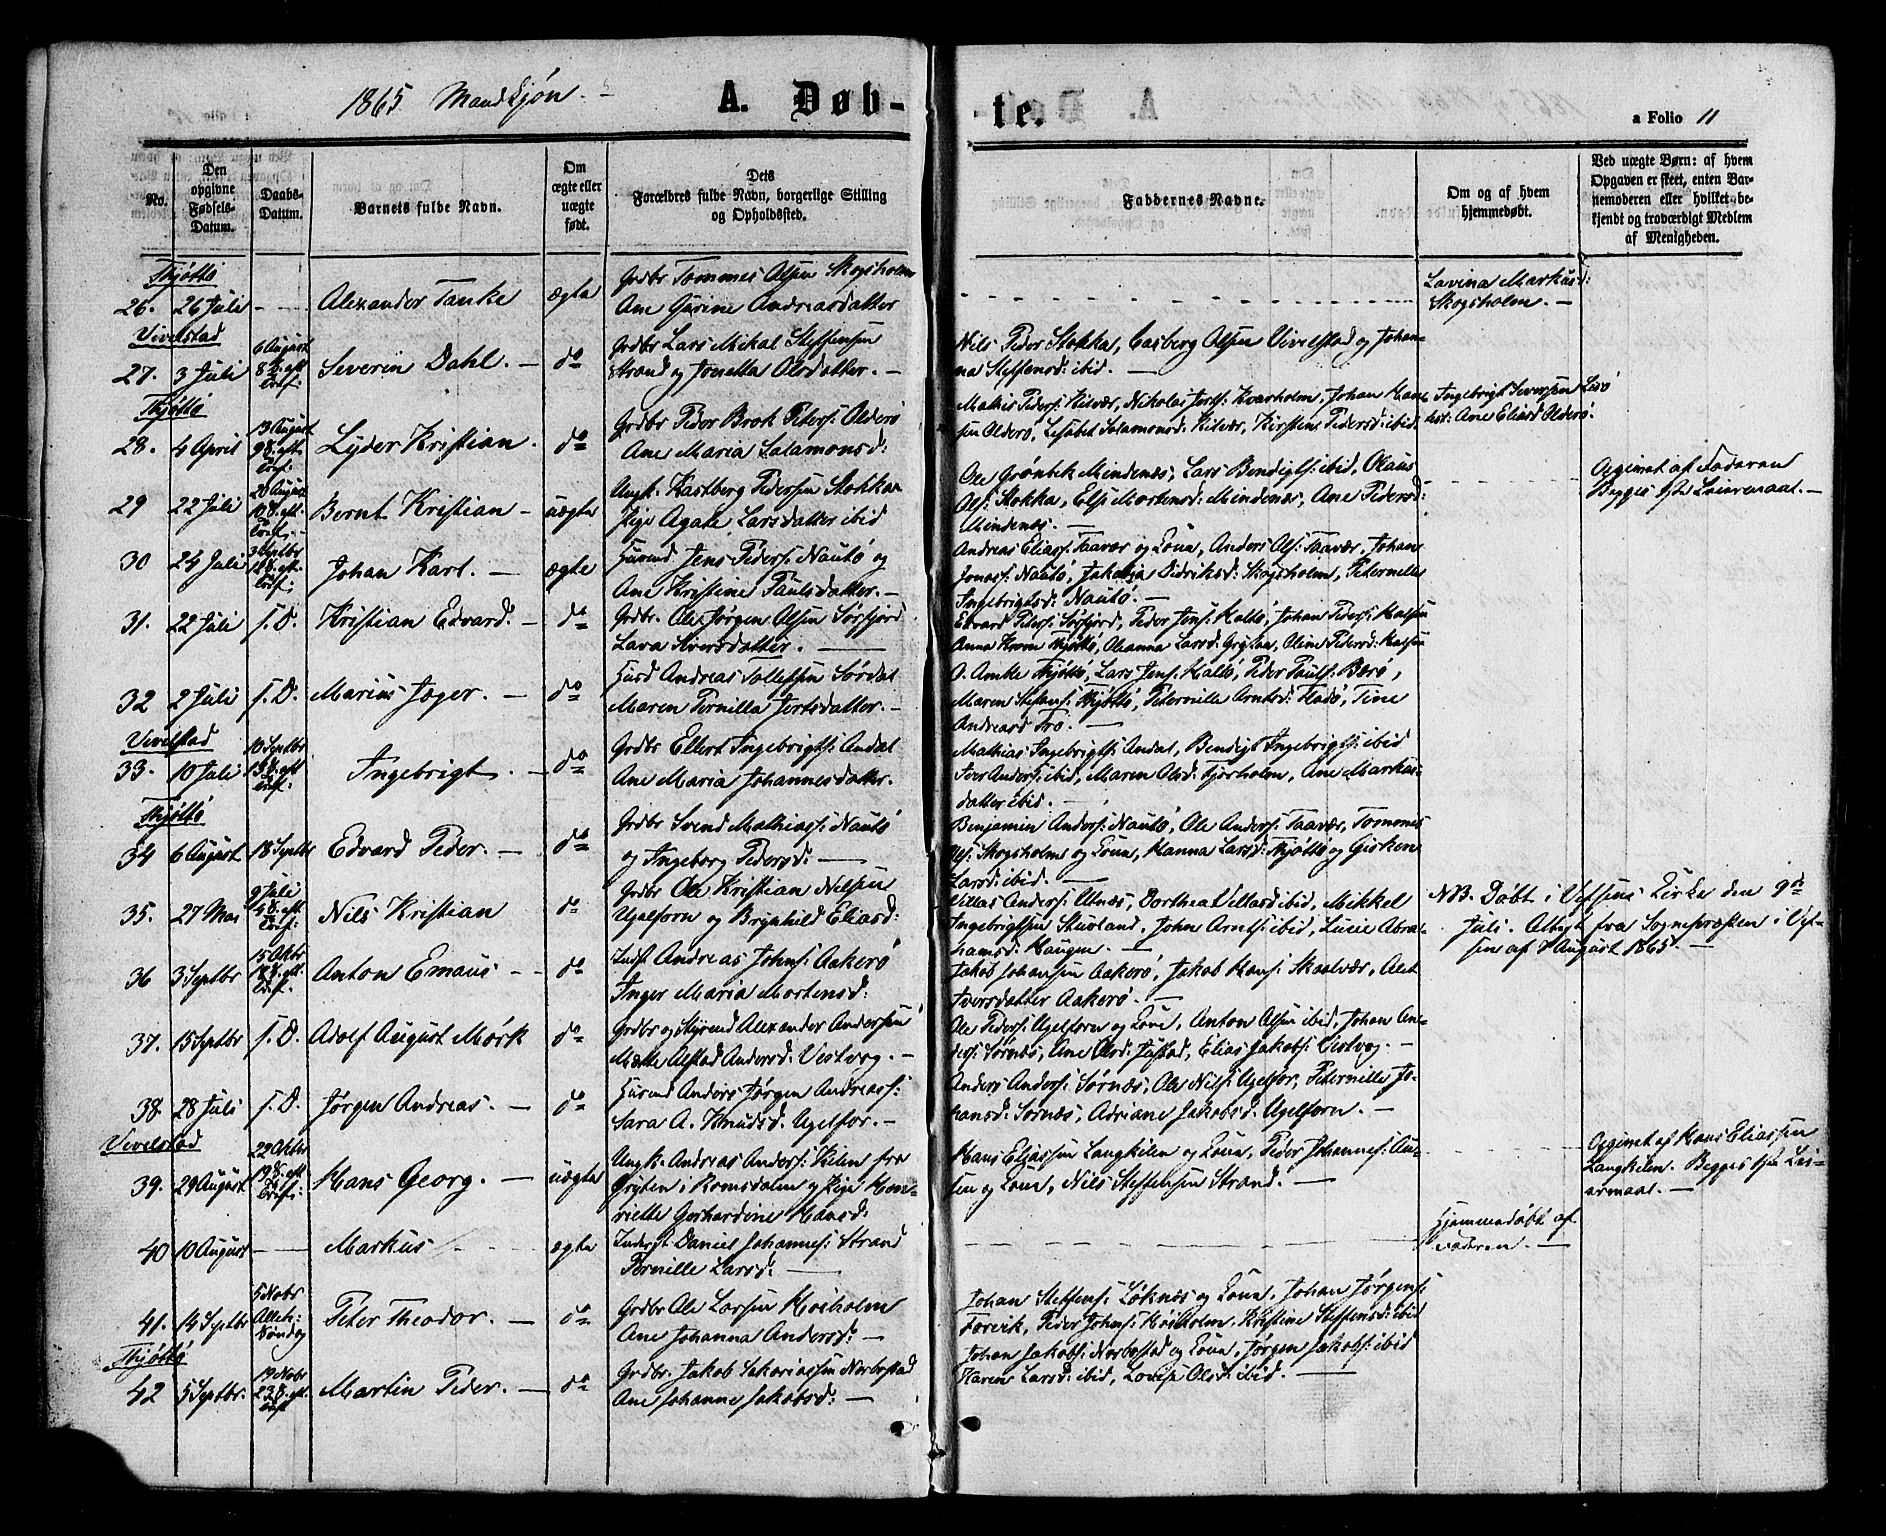 1865 Mandkjøn. A. Døb-
te. a Folio 11
No.
Den opgivne Fødsels-Datum.
Daabs-Datum.
Barnets fulde Navn.
Om ægte eller uægte født.
Dets Forældres fulde Navn, borgerlige Stilling og Opholdssted.
Faddernes Navne.
Om og af hvem hjemmedøbt.
Ved uægte Børn: af hvem Opgaven er skeet, enten Barnemoderen eller hvilket bekjendt og troværdigt Medlem af Menigheden.
Thjøttø
26. 26 Juli - Alexander Tanke ægte Grdbr Tommes Olsen Skogsholm
Ane Gurine Andreasdatter
Lavina Markusd:
Skogsholm. -
Vivelstad
27. 3 Juli 6 August 8 S. eft. Tref: Severin Dahl. - do Grdbr Lars Mikal Steffensen
Strand og Jonetta Olsdatter. -
Nils Peder Stokka, Casberg Olsen Vivelstad og Johan-
na Steffensd: ibid. -
Thjøttø
28. 4 April 13 August 9 S. eft. Tref: Lyder Kristian. do Grdbr Peder Brok Peters: Olderø
Ane Maria Salamonsd:
Mathis Peders: Kilvær, Nikolai Jerts: Kvarholm, Johan Han-
sen Olderø, Lisabet Salamonsd: Kilvær, Kirstine Pedersd: ibid.
Ingebrigt Iversen Lisø
Ane Eliasd Olderø.
29 22 Juli 20 August 10 S. eft. Tref. Bernt Kristian - uægte Ungk. Kastberg Pedersen Stokka
Pige Agate Larsdatter ibid
Ole Grønbek Mindenæs, Lars Bendigts: ibid, Olaus
Ols: Stokka, Else Mortensd: Mindenæs, Ane Pedersd:
Mindenæs. -
Opgivet af Faderen
Begges 1ste Leiermaal. -
30 24 Juli 3 Septbr 12 S. eft. Tref: Johan Karl. - ægte Husmd Jens Peders: Nautø og
Ane Kristine Paulsdatter. -
Andreas Elias: Taavær og Kone, Anders Ols: Taavær, Johan
Jonas: Nautø, Jakobia Didriksd: Skogsholm, Peternelle
Ingebrigtsd: Nautø. -
31. 22 Juli S. D. Kristian Edvard. - do Grdbr. Ole Jørgen Olsen Sørfjord
Lava Iversdatter. -
Edvard Peders: Sørfjord, Peder Jens: Kalsø, Johan Peders:
Anna Thjøttø, Oleanna Larsd: Oline Pedersd:
32 2 Juli S. D. Marius Jæger. - do Husd Andreas Tollefsen Sørdal
Maren Pernilla Jertsdatter. -
O. Thjøttø, Lars Jens: Kalsø, Peder Pauls: Borø,
Maren Stefens: Thjøttø, Peternille Arntsd: Flado, Tine
Andreasd Tro. -
Vivelstad
33. 10 Juli 10 Septbr 13 S. eft Tref: Ingebrigt. - do Grdbr Ellert Ingebrigts: Andal
Ane Maria Johannesdatter.
Mathias Ingebrigts: Andal, Bendigt Ingebrigts: ibid
Iver Anders: ibid, Maren Olsd: Fjorholm, Ane Markus-
datter ibid. -
Thjøttø
34 6 August 18 Septbr Edvard Peder. - do Grdbr Svend Mathias: Nautø
og Ingeborg Pedersd: -
Benjamin Anders: Nautø, Ole Anders: Taavær, Tommes
Ols: Skogsholm og Kone, Hanna Larsd: Thjøttø og Girken
Larsd: ibid. -
35. 27 Mai 9 Juli 4 S. eft. Tref: Nils Kristian do Grdbr Ole Kristian Nilsen
Ugelforn og Brynhild Eliasd:
Villas Anders: Alnæs, Dorthea Villasd ibid, Mikkel
Ingebrigtsen Stuvland, John Arnts: ibid, Lucie Abra-
hamsd: Haugen. -
NB. Døbt i Vefsens Kirke den 9de
Juli. Attest fra Sognepræsten i Vef-
sen af 7 August 1865. -
36 3 Septbr 15 Oktbr 18 S. eft. Tref. Anton Emaus - - do Indst Andreas Johns: Aakerø
Inger Maria Mortensd:
Jakob Johansen Aakerø, Jakob Hans: Skaalvær, Alet
Iversdatter Aakerø. -
37. 15 Septbr S. D. Adolf August Mørk do Grdbr og Styrmd Alexander Andersen
Mætte Alstad Andersd: Vestvog. -
Ole Peders: Ugelforn og Kone, Anton Olsen ibid, Johan An-
ders: Sørnæs, Ane Olsd: Justad, Elias Jakobs: Vestvog. -
38. 28 Juli S. D. Jørgen Andreas. - do Husmd Anders Jørgen Andreas:
Sara A. Knudsd. Ugelfor. -
Anders Anders: Sørnæs, Ole Nils: Ugelfor, Peternille Jo-
hansd: Sørnæs, Adriane Jakobsd: Ugelforn. -
Vevelstad
39. 29 August 22 Oktbr 19 S. eft Tref: Hans Georg. - uægte Ungk. Andreas Anders: Kilen fra
Gryten i Romsdalen og Pige Hen-
riette Gerhardine Hansd:
Hans Eliassen Langkilen og Kone, Peder Johannes: Au-
sen og Kone, Nils Steffensen Strand. -
Opgivet af Hans Eliassen
Langkilen. Begges 1ste Lei-
ermaal. -
40 10 August - Markus ægte Inderst Daniel Johannes: Strand
Pernille Larsd: -
Hjemmedøbt af
Faderen. -
41. 14 Septbr 5 Novbr Alleh: Søndag Peter Theodor. - do Grdbr Ole Larsen Høiholm
Ane Johanna Andersd: -
Johan Steffens: Løknæs og Kone, Johan Jørgens:
Forvik, Peder Johns: Høiholm, Kristine Steffensd: ibid
Thjøttø
42 5 Septbr. 19 Novbr 23 S. eft. Tref Martin Peder. - do Grdbr. Jakob Sakariassen Norbostad
Ane Johanne Jakobsd: -
Johan Jakobs: Norbostad og Kone, Jørgen Jakobs: ibid
Karen Larsd: ibid, Lovise Olsd: ibid. -